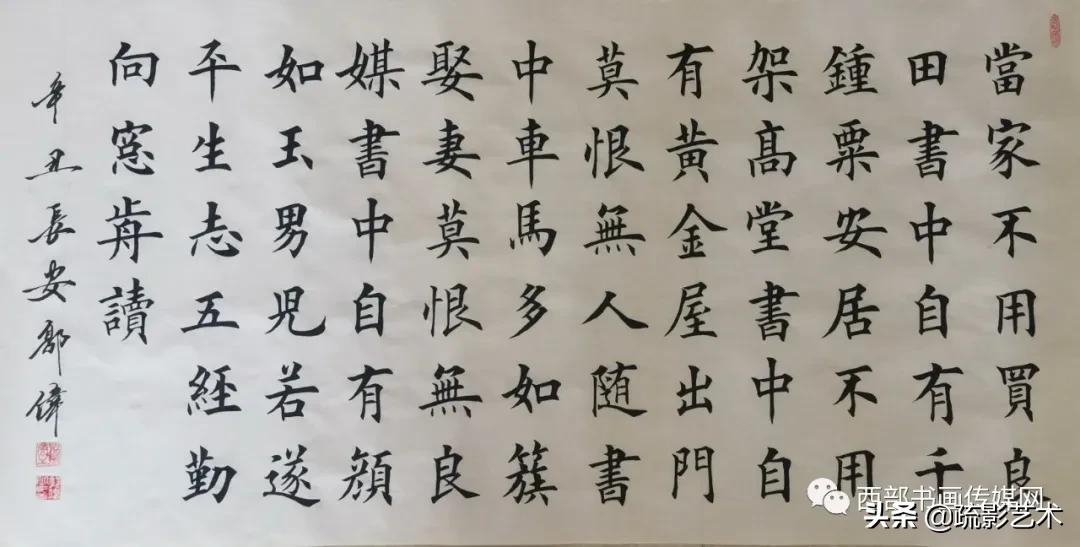 當家不用買良
田書中自有千
鍾粟安居不用
架高堂書中自
有黃金屋出門
莫恨無人随書
中車馬多如簇
娶妻莫恨無良
媒書中自有顏
如玉男児若遂
平生志五經勤
向窓前讀
辛丑長安郭偉
西部书画传媒网
头条 @疏影艺术